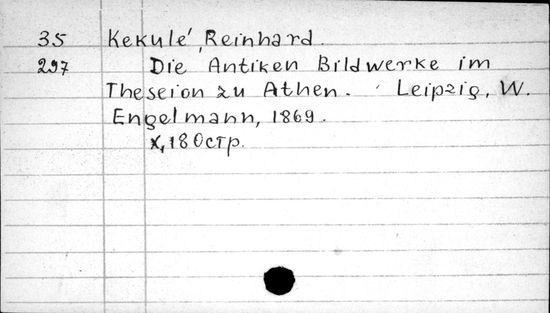 35 Kekulé, Reinhard.
297 Die Antiken Bildwerke im
Theseion zu Athen. Leipzig, W.
Engelmann, 1869.
X, 180 стр.